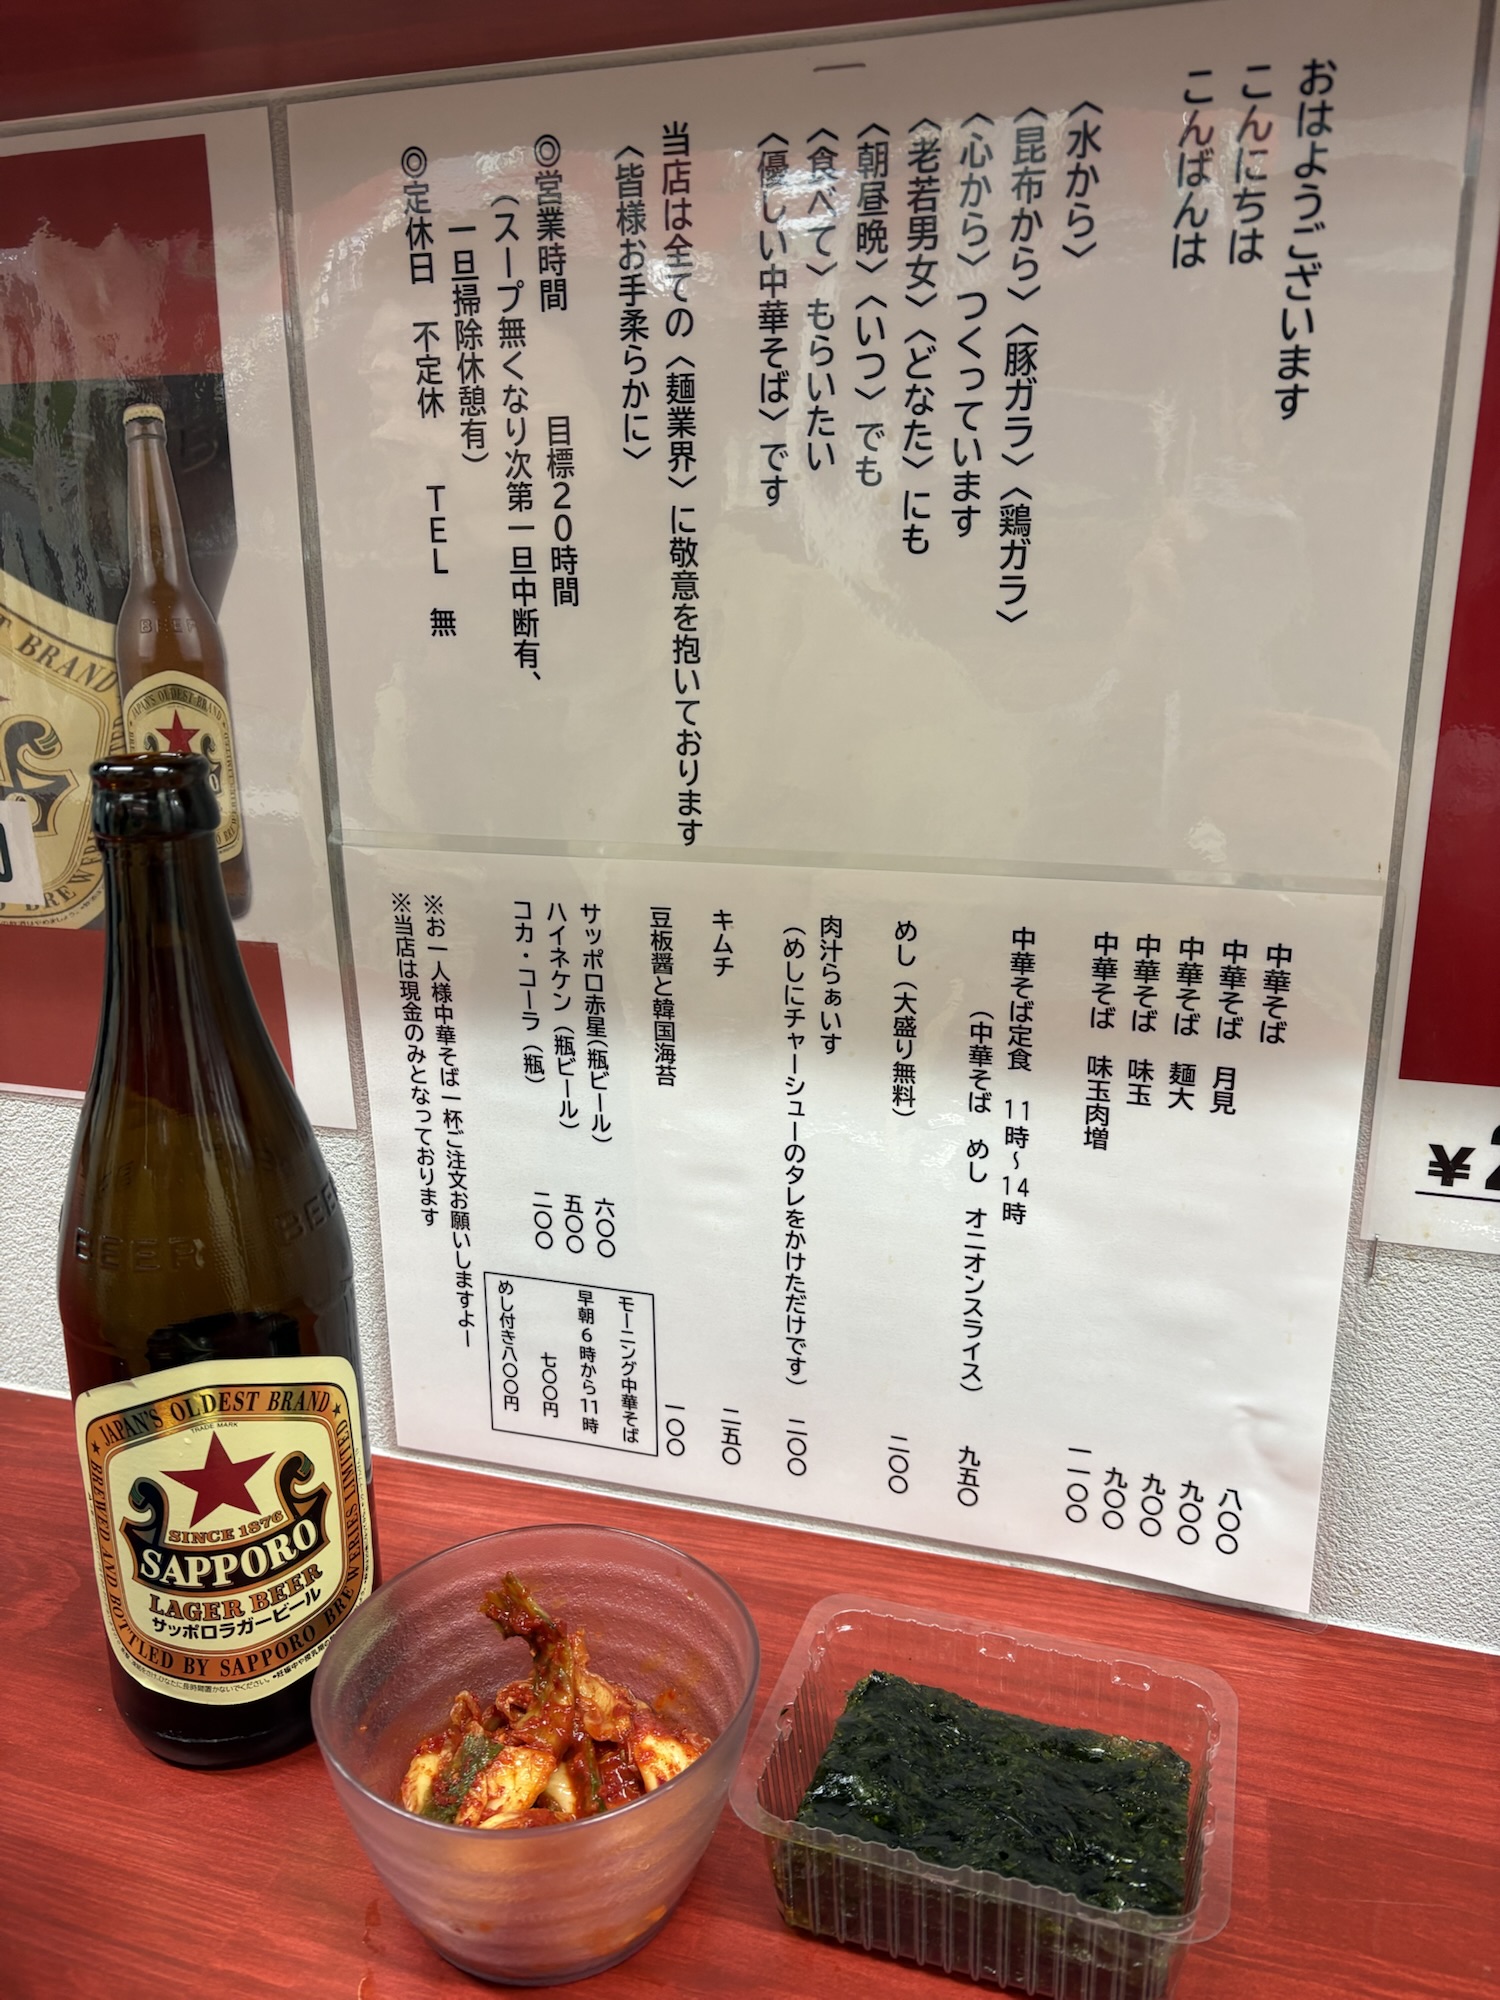 おはようございます
こんにちは
こんばんは
〈水から〉
〈昆布から〉〈豚ガラ〉〈鶏ガラ〉
〈心から〉つくっています
〈老若男女〉〈どなた〉にも
〈朝昼晩〉〈いつ〉でも
〈食べて〉もらいたい
〈優しい中華そば〉です
当店は全ての〈麺業界〉に敬意を抱いております
〈皆様お手柔らかに〉
◎営業時間 目標20時間
(スープ無くなり次第一旦中断有、
一旦掃除休憩有)
◎定休日 不定休 TEL 無
中華そば 八〇〇
中華そば 月見 九〇〇
中華そば 麺大 九〇〇
中華そば 味玉 九〇〇
中華そば 味玉肉増 一一〇〇
中華そば定食 11時~14時
(中華そば めし オニオンスライス) 九五〇
めし(大盛り無料) 二〇〇
肉汁らぁいす
(めしにチャーシューのタレをかけただけです) 二〇〇
キムチ 二五〇
豆板醤と韓国海苔 一〇〇
サッポロ赤星(瓶ビール) 六〇〇
ハイネケン(瓶ビール) 五〇〇
コカ・コーラ(瓶) 二〇〇
※お一人様中華そば一杯ご注文お願いしますよー
※当店は現金のみとなっております
モーニング中華そば
早朝6時から11時
七〇〇円
めし付き八〇〇円
JAPAN'S OLDEST BRAND
TRADE MARK
SINCE 1876
SAPPORO
LAGER BEER
サッポロラガービール
BREWED AND BOTTLED BY SAPPORO BREWERIES LIMITED
BEER
BEER
BEER
JAPAN'S OLDEST BRAND
BRAND
¥